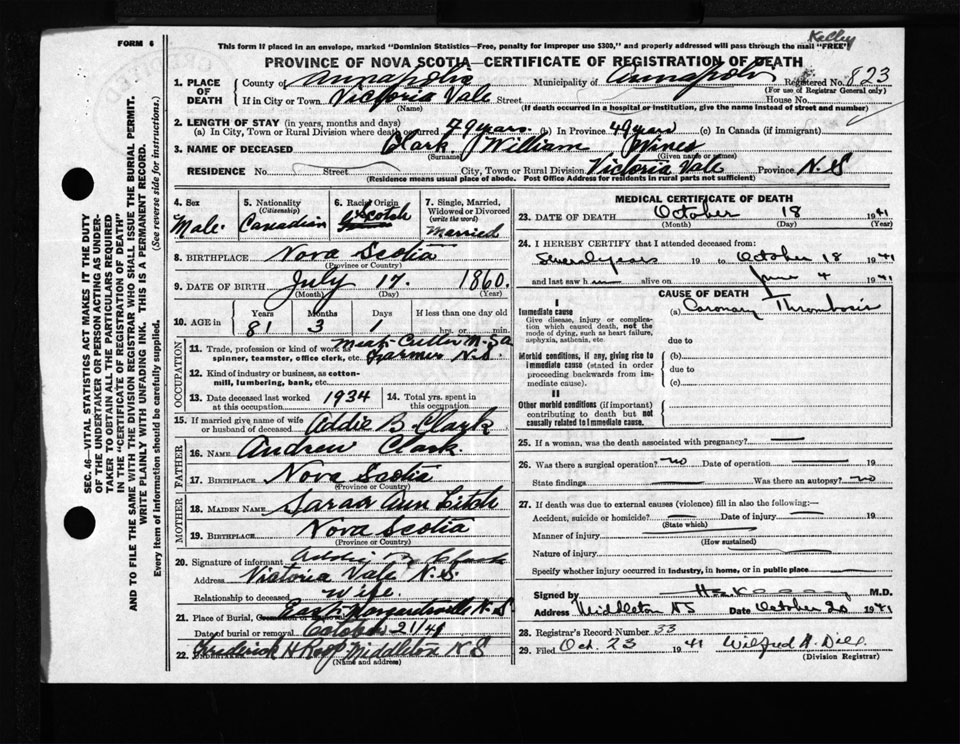 Kelly
FORM 6
This form if placed in an envelope, marked "Dominion Statistics—Free, penalty for improper use $300," and properly addressed will pass through the mail "FREE"
PROVINCE OF NOVA SCOTIA—CERTIFICATE OF REGISTRATION OF DEATH
1. PLACE OF DEATH
County of Annapolis Municipality of Annapolis Registered No. 823
(For use of Registrar General only)
If in City or Town Victoria Vale Street House No.
(Name) (If death occurred in a hospital or institution, give the name instead of street and number)
2. LENGTH OF STAY (in years, months and days)
(a) In City, Town or Rural Division where death occurred 79 years (b) In Province 49 years (c) In Canada (if immigrant)
3. NAME OF DECEASED Clark William Wines
(Surname) (Given name or names)
RESIDENCE No. Street City, Town or Rural Division Victoria Vale Province N.S
(Residence means usual place of abode. Post Office Address for residents in rural parts not sufficient)
4. Sex
Male
5. Nationality
(Citizenship)
Canadian
6. Racial Origin
Scotch
7. Single, Married, Widowed or Divorced
(write the word)
Married
8. BIRTHPLACE Nova Scotia
(Province or Country)
9. DATE OF BIRTH July 17. 1860.
(Month) (Day) (Year)
10. AGE in
Years Months Days If less than one day old
81 3 1 hrs. or min.
OCCUPATION
11. Trade, profession or kind of work as spinner, teamster, office clerk, etc. Meat Cutter
Farmer N.S.
12. Kind of industry or business, as cotton-mill, lumbering, bank, etc.
13. Date deceased last worked at this occupation 1934
14. Total yrs. spent in this occupation
15. If married give name of wife or husband of deceased Addie B. Clark
FATHER
16. NAME Andrew Clark
17. BIRTHPLACE Nova Scotia
(Province or Country)
MOTHER
18. MAIDEN NAME Sarah Ann
19. BIRTHPLACE Nova Scotia
(Province or Country)
20. Signature of informant Addie B Clark
Address Victoria Vale N.S.
Relationship to deceased Wife
21. Place of Burial, East Margaretsville N.S
Date of burial or removal October 21/41
22. Frederick H Roop Middleton N S
(Name and address)
MEDICAL CERTIFICATE OF DEATH
23. DATE OF DEATH October 18 1941
(Month) (Day) (Year)
24. I HEREBY CERTIFY that I attended deceased from:
Several years 19 to October 18 1941
and last saw h alive on June 4 1941
CAUSE OF DEATH
I
Immediate cause
Give disease, injury or complication which caused death, not the mode of dying, such as heart failure, asphyxia, asthenia, etc.
(a) Coronary Thrombosis
due to
Morbid conditions, if any, giving rise to immediate cause (stated in order proceeding backwards from immediate cause).
(b)
due to
(c)
II
Other morbid conditions (if important) contributing to death but not causally related to immediate cause.
25. If a woman, was the death associated with pregnancy?
26. Was there a surgical operation? no Date of operation 19
State findings Was there an autopsy? no
27. If death was due to external causes (violence) fill in also the following:—
Accident, suicide or homicide? Date of injury 19
(State which)
Manner of injury
(How sustained)
Nature of injury
Specify whether injury occurred in industry, in home, or in public place
Signed by M.D.
Address Middleton NS Date October 20 1941
28. Registrar's Record Number 33
29. Filed Oct. 23 1941 Wilfred A.
(Division Registrar)
SEC. 46—VITAL STATISTICS ACT MAKES IT THE DUTY
OF THE UNDERTAKER OR PERSON ACTING AS UNDER-
TAKER TO OBTAIN ALL THE PARTICULARS REQUIRED
IN THE "CERTIFICATE OF REGISTRATION OF DEATH"
AND TO FILE THE SAME WITH THE DIVISION REGISTRAR WHO SHALL ISSUE THE BURIAL PERMIT.
WRITE PLAINLY WITH UNFADING INK. THIS IS A PERMANENT RECORD.
Every item of Information should be carefully supplied. (See reverse side for instructions.)